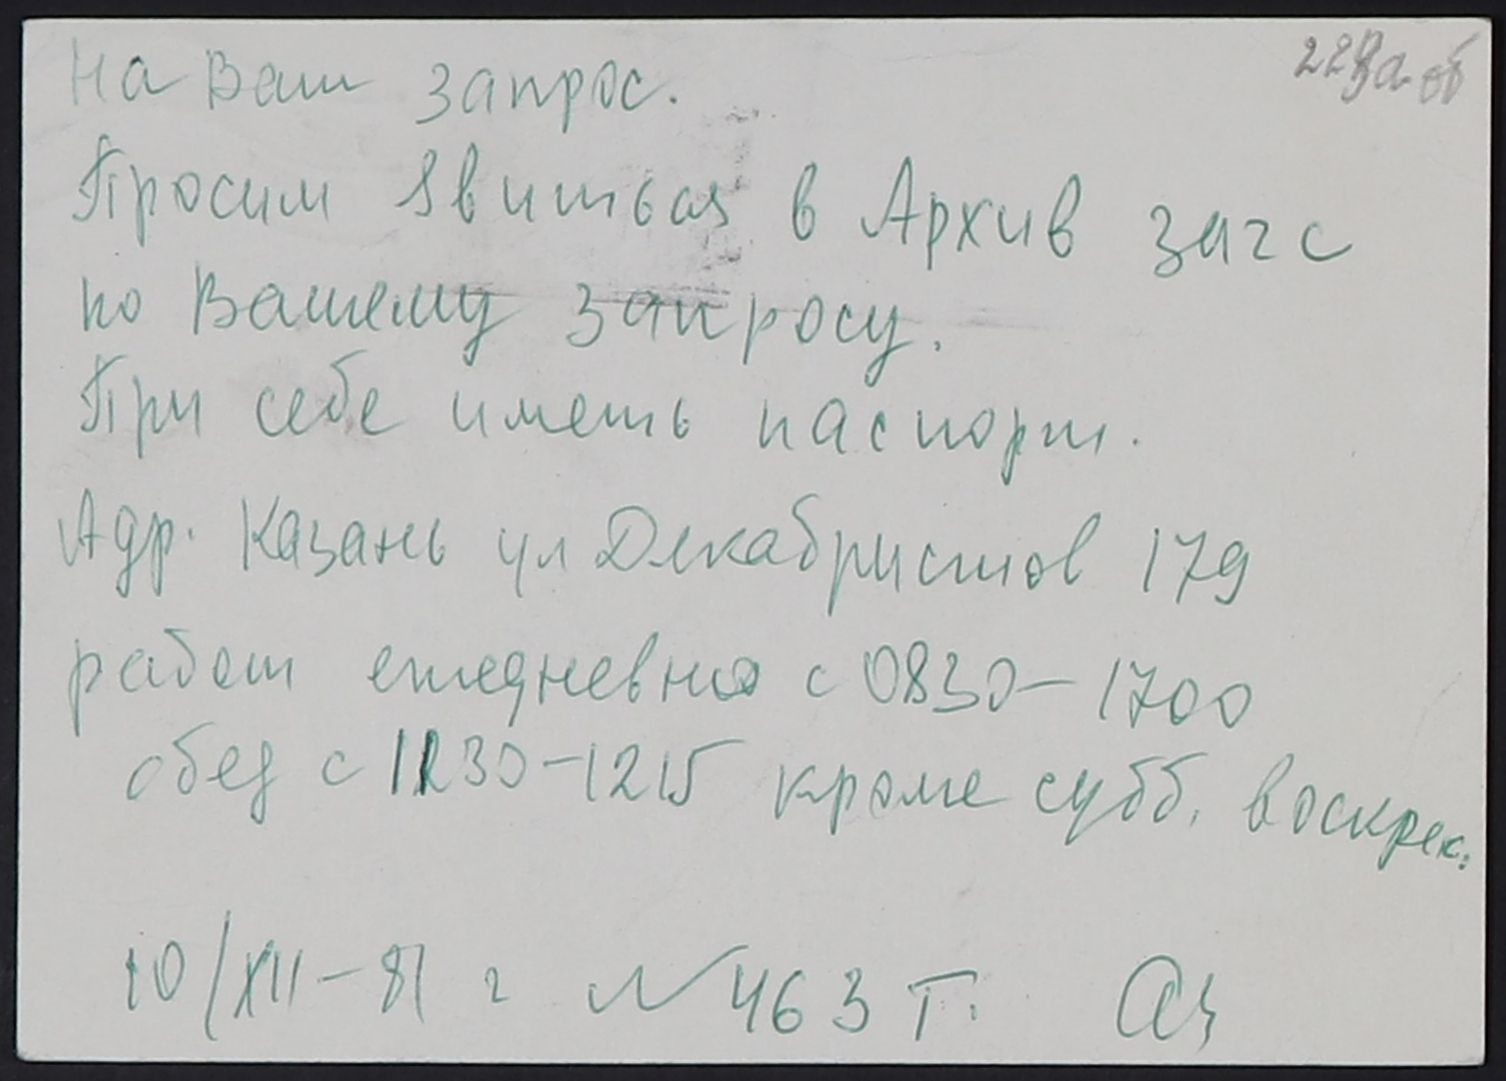 На Ваш запрос.
Просим явиться в Архив загс
по Вашему запросу.
При себе иметь паспорт.
Адр. Казань ул Декабристов 179
работ ежедневно с 0830-1700
обед с 1130-1215 кроме субб, воскрес.
10/XII-81 г № 463 Т.